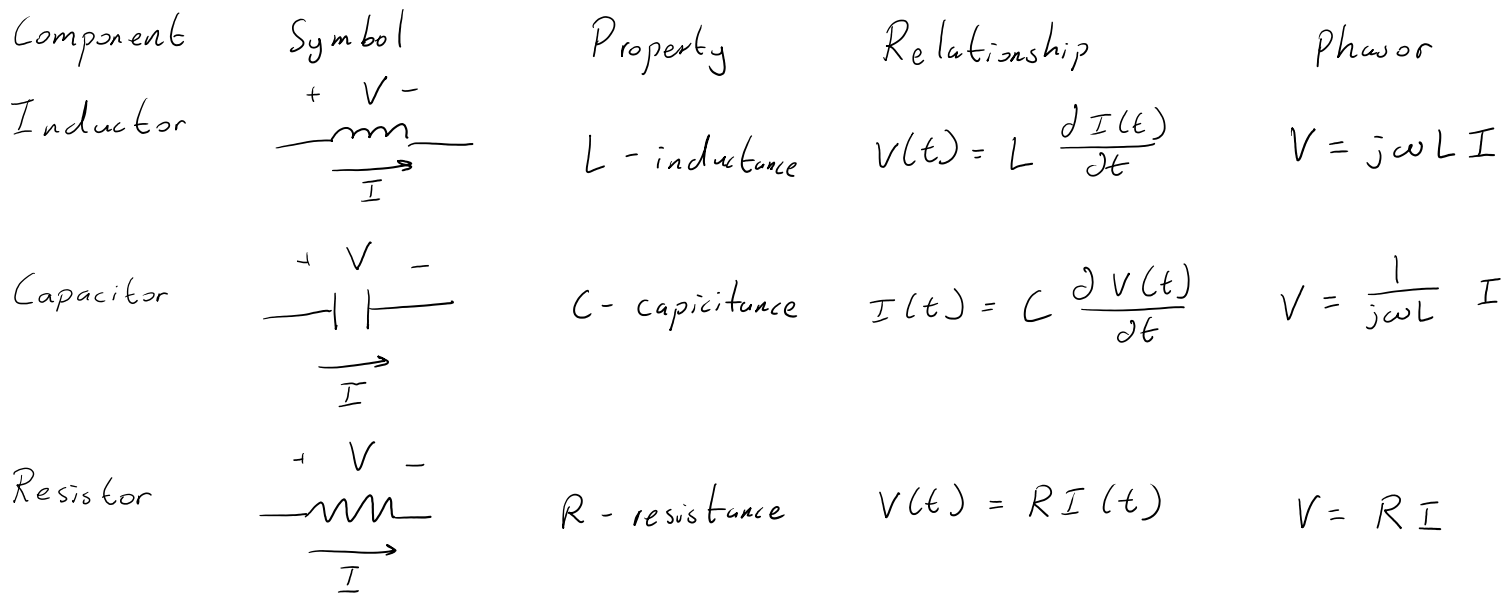 Component Symbol Property Relationship Phasor
+ V -
Inductor L - inductance V(t) = L ∂I(t)/∂t V = jωL I
I
+ V -
Capacitor C - capicitance I(t) = C ∂V(t)/∂t V = 1/jωL I
I
+ V -
Resistor R - resistance V(t) = R I(t) V = R I
I